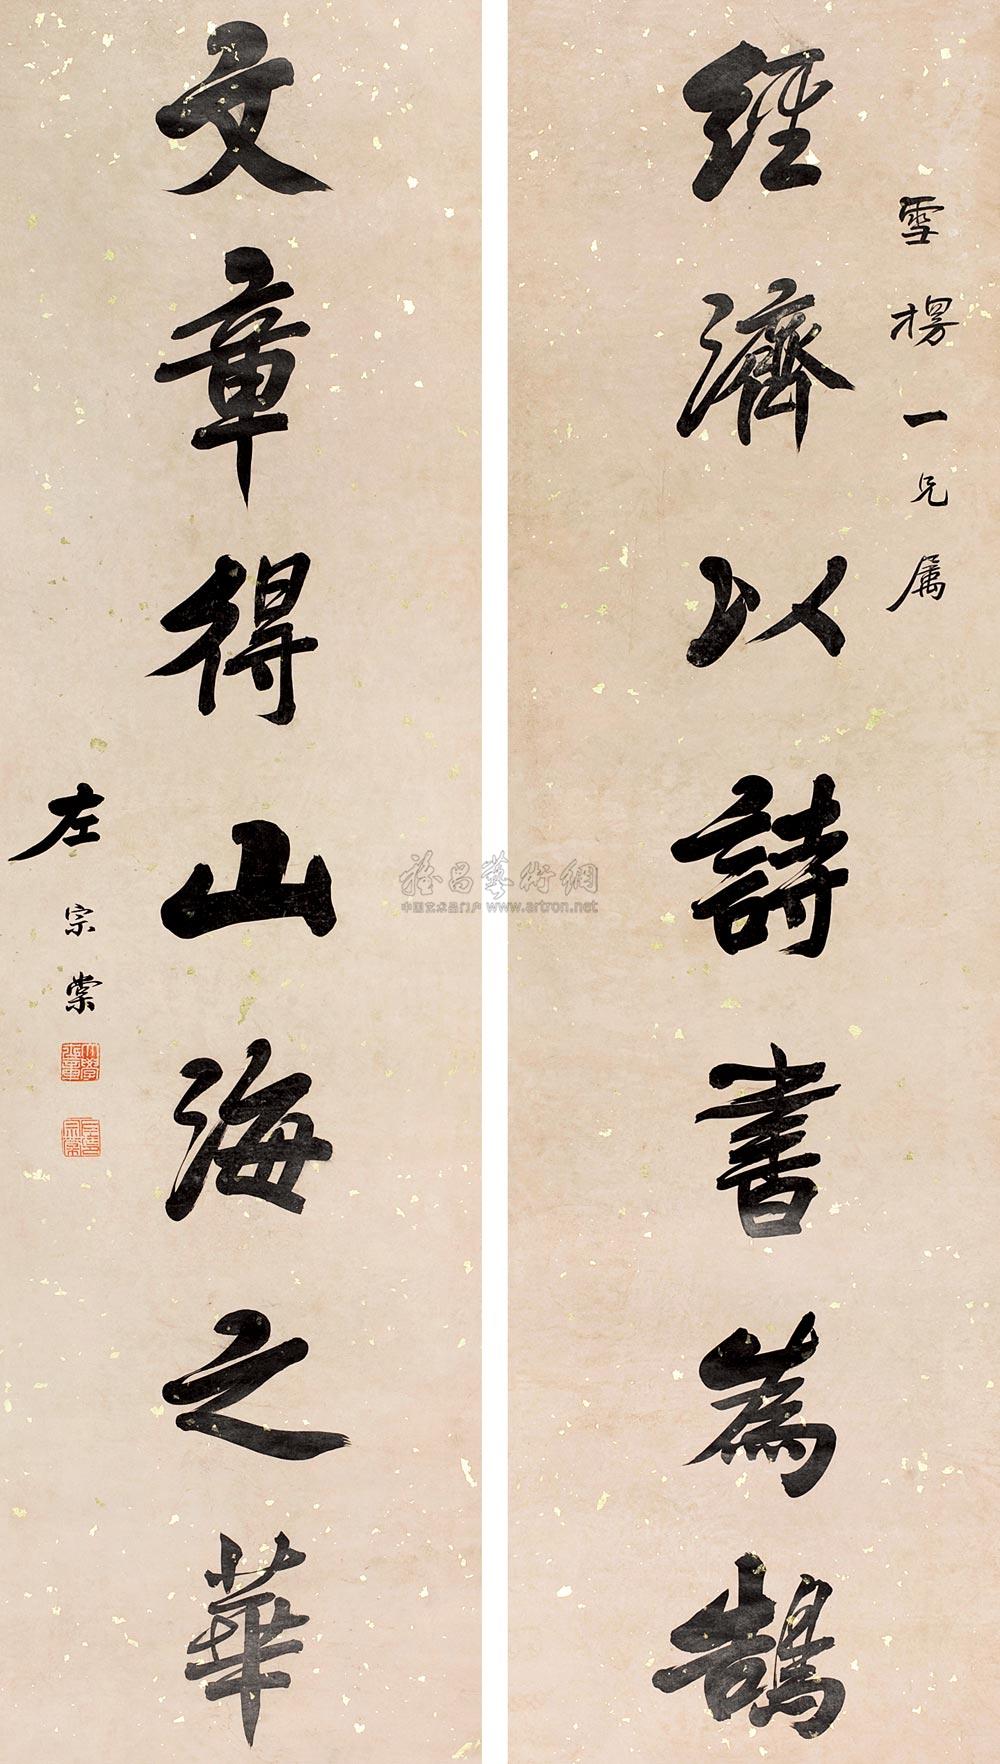 雪楞一兄属
经濟以詩書為鵠
文章得山海之華
左宗棠
中国艺术品门户 www.artron.net